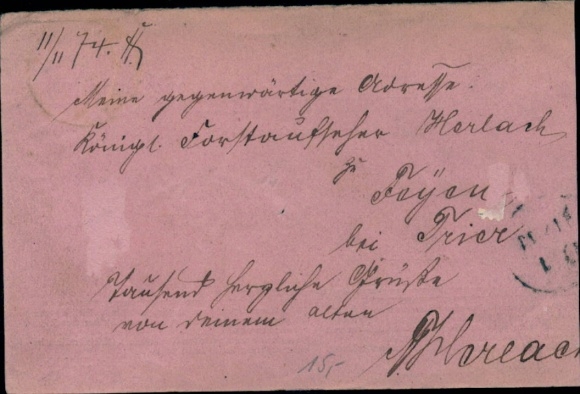 11/11 74.
Meine gegenwärtige Adresse.
Königl. Forstaufseher Horlach
zu
Feÿen
bei Trier
Tausend herzliche Grüße
von deinem alten
Horlach
15,-